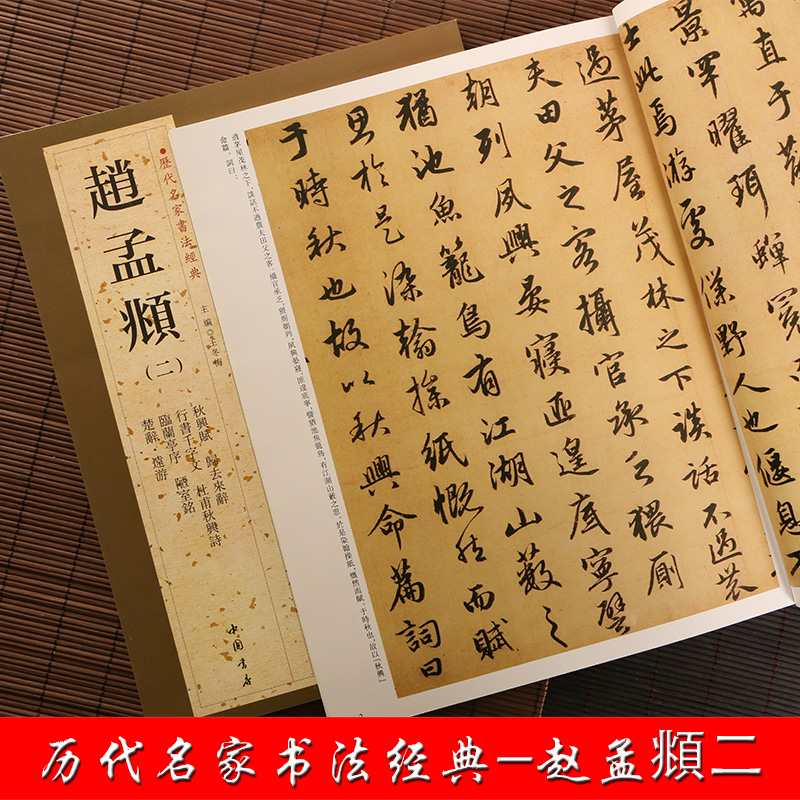 •歷代名家書法經典
趙孟頫
(二)
主編◎王冬梅
秋興賦 歸去來辭
行書千字文 杜甫秋興詩
臨蘭亭序 陋室銘
楚辭·遠游
中国書店
寓直于散
景罕曜珥蟬冕
士此焉游處僕野人也偃息不
過茅屋茂林之下談話不過農
夫田父之客攝官承乏猥廁
朝列夙興晏寢匪遑底寧譬
猶池魚籠鳥有江湖山藪之
思於是染翰操紙慨然而賦
于時秋也故以秋興命篇詞曰
過茅屋茂林之下，談話不過農夫田父之客。攝官承乏，猥厠朝列，夙興晏寢，匪遑底寧，譬猶池魚籠鳥，有江湖山藪之思。於是染翰操紙，慨然而賦。于時秋也，故以「秋興」
命篇。詞曰：
历代名家书法经典—赵孟頫二